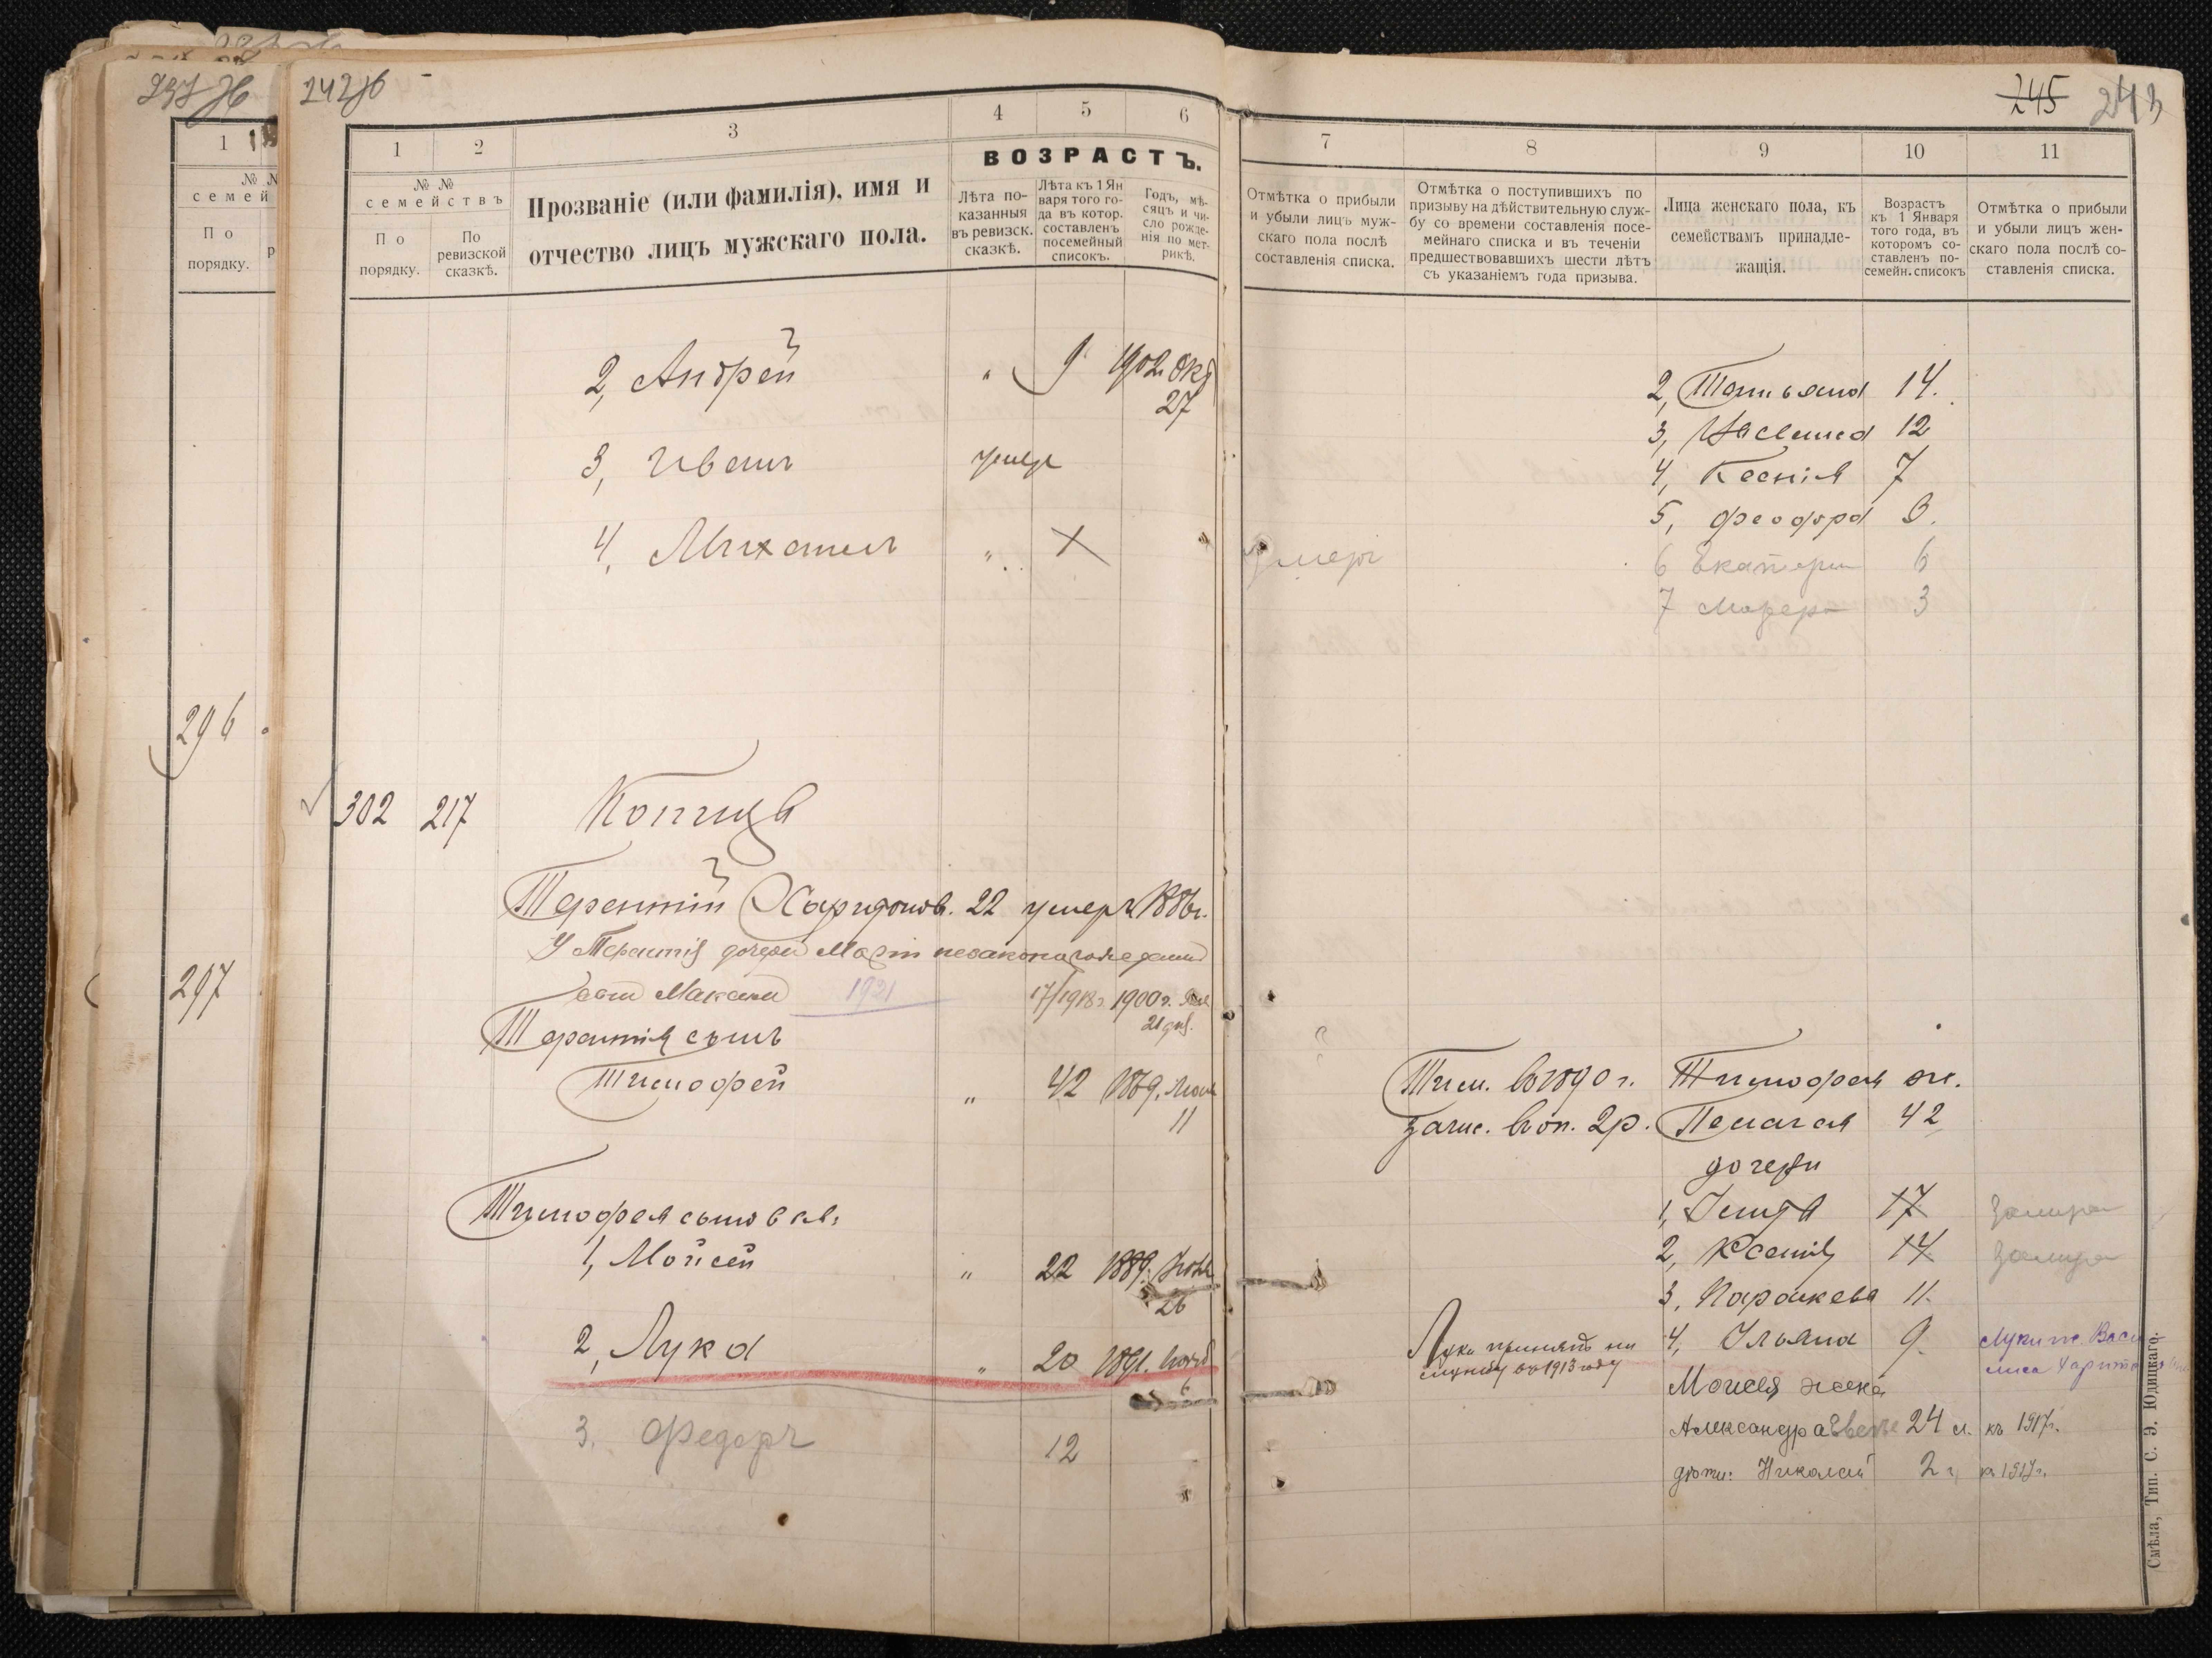 242
1
2
3
4
5
6
ВОЗРАСТЪ.
№ №
семействъ
По
порядку.
По
ревизской
сказкѣ.
Прозваніе (или фамилія), имя и
отчество лицъ мужскаго пола.
Лѣта по-
казанныя
въ ревизск.
сказкѣ.
Лѣта къ 1 Ян
варя того го-
да въ котор.
составленъ
посемейный
списокъ.
Годъ, мѣ-
сяцъ и чи-
сло рожде-
нія по мет-
рикѣ.
2, Андрей " 9 1902. Окт
27
3, Иванъ умеръ
4, Михаилъ "
296
302 217
Терентій Харитонов. 22 умеръ 1886г.
У Терентія дочери Маріи незаконнорожденный
сынъ Максимъ 1921 17/1918г. 1900г.
21 дня.
297
Терентія сынъ
Тимофей " 42 1869.
11
Тимофея сыновья:
1, Мойсей " 22 1889.
26
2, Лука " 20 1891. Нояб
6
3. Федоръ 12
245 243
7
8
9
10
11
Отмѣтка о прибыли
и убыли лицъ муж-
скаго пола послѣ
составленія списка.
Отмѣтка о поступившихъ по
призыву на дѣйствительную служ-
бу со времени составленія посе-
мейнаго списка и въ теченіи
предшествовавшихъ шести лѣтъ
съ указаніемъ года призыва.
Лица женскаго пола, къ
семействамъ принадле-
жащія.
Возрастъ
къ 1 Января
того года, въ
которомъ со-
ставленъ по-
семейн. списокъ
Отмѣтка о прибыли
и убыли лицъ жен-
скаго пола послѣ со-
ставленія списка.
2, Татьяна 14.
3, 12
4, Ксенія 7
5, Феодора 3.
Умеръ
6 Екатерин 6
7 3
Тим. въ 1890 г. Тимофея ж.
зачис. въ оп. 2р. Пелагея 42
дочери
1, 17
2, Ксенія 14
3, Параскева 11.
Лука принятъ на
службу въ 1913 году
4, Ульяна 9.
Моисея жена
Александра 24 л. къ 1917г.
дѣти: Николай 2 г. къ 1917г.
Смѣла, Тип. С. Э. Юдицкаго.